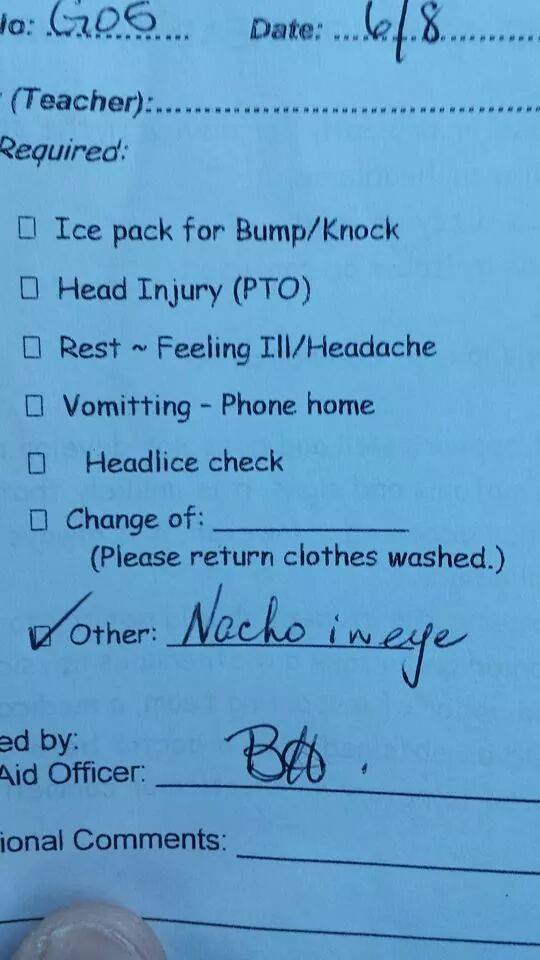 No: G06 Date: 6/8
(Teacher):
Required:
Ice pack for Bump/Knock
Head Injury (PTO)
Rest ~ Feeling Ill/Headache
Vomitting - Phone home
Headlice check
Change of:
(Please return clothes washed.)
Other: Nacho in eye
ed by:
Aid Officer:
ional Comments: